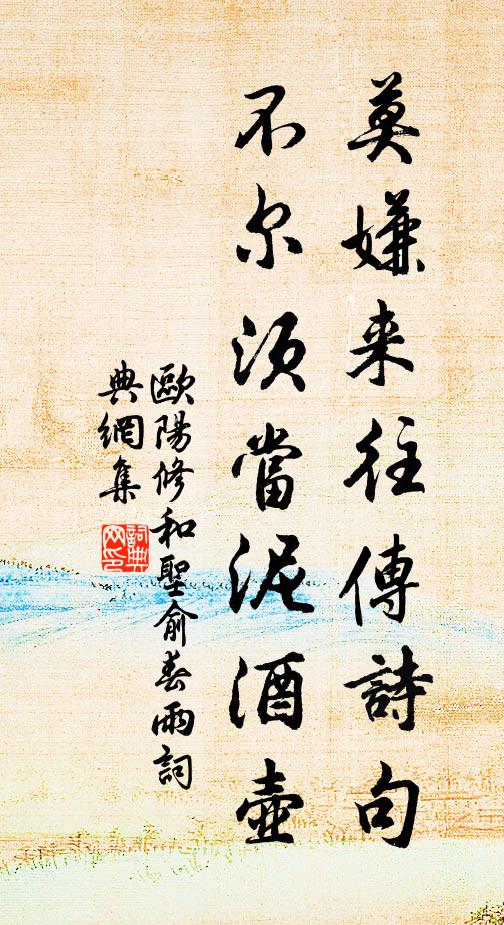 莫嫌来往傳詩句
不尔須當泥酒壺
歐陽修和聖俞春雨詞
典網集
詞典
网印